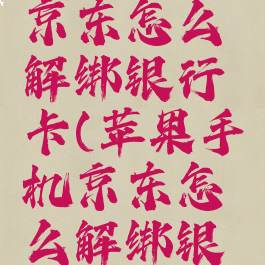 京东怎么
解绑银行
卡(苹果手
机京东怎
么解绑银